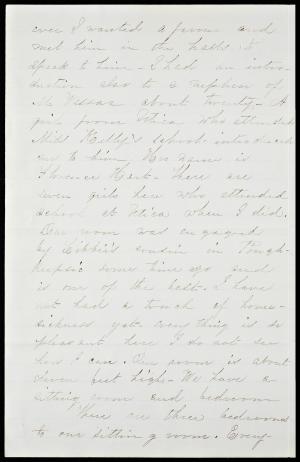 ever I wanted a favor and
met him in the halls to
speak to him - I had an intro-
duction also to a nephew of
Mr Vassar about twenty - A
girl from Utica who attended
Miss Kelly's school introduced
me to him, Her name is
Florence Hart - There are
seven girls here who attended
school at Utica when I did.
Our room was engaged
by Libbie's cousin in Pough-
keepsie some time ago and
is one of the best. I have
not had a touch of home-
sickness yet - everything is so
pleasant here I do not see
how I can. Our room is about
eleven feet high - We have a
sitting room and bedroom
There are three bedrooms
to one sitting room. Every-